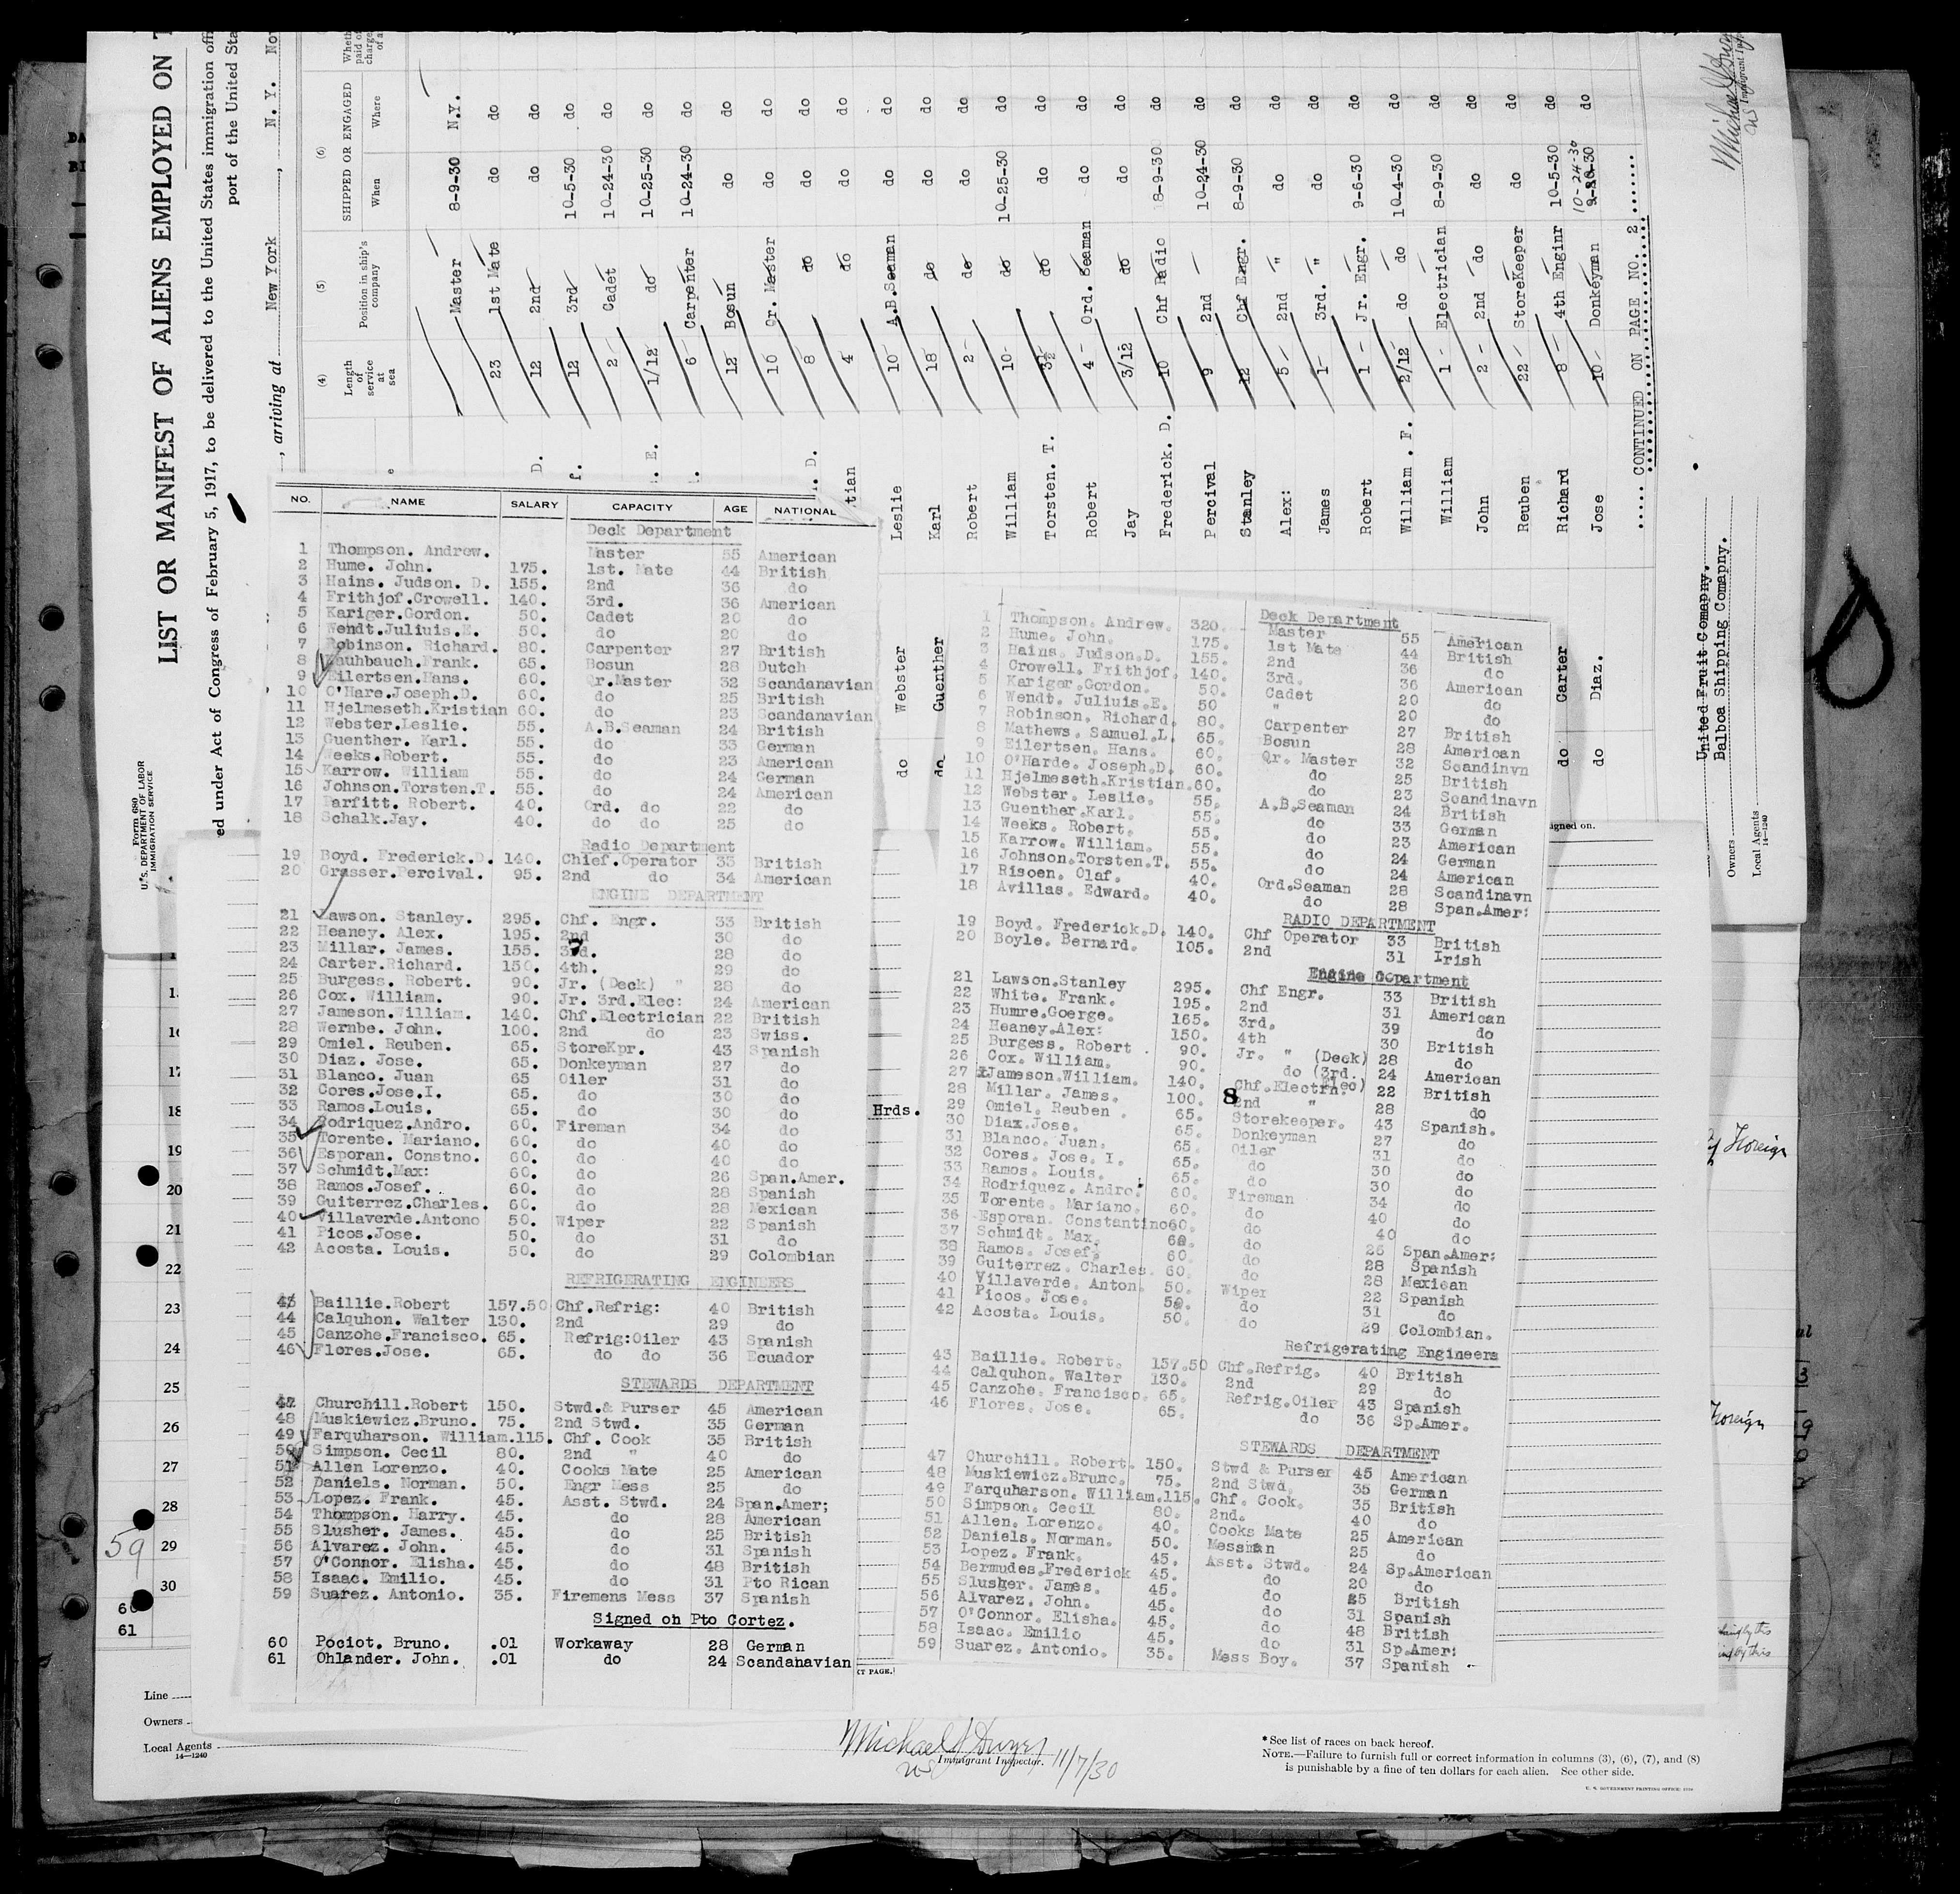 LIST OR MANIFEST OF ALIENS EMPLOYED ON T
ed under Act of Congress of February 5, 1917, to be delivered to the United States immigration offi
port of the United Sta
, arriving at New York , N. Y. No
Form 680
U. S. DEPARTMENT OF LABOR
IMMIGRATION SERVICE
(4) (5) (6)
Length of service at sea Position in ship's company SHIPPED OR ENGAGED
When Where
Master 8-9-30 N.Y.
23 1st Mate do do
D. 12 2nd do do
12 3rd 10-5-30 do
2 Cadet 10-24-30 do
E. 1/12 do 10-25-30 do
6 Carpenter 10-24-30 do
12 Bosun do do
10 Qr. Master do do
D. 8 do do do
tian 4 do do do
do Webster Leslie 10 A.B.Seaman do do
do Guenther Karl 18 do do do
Robert 2 do do do
William 10 do 10-25-30 do
Torsten. T. 3½ do do do
Robert 4 Ord. Seaman do do
Jay 3/12 do do do
Frederick. D. 10 Chf Radio 8-9-30 do
Percival 9 2nd 10-24-30 do
Stanley 12 Chf Engr. 8-9-30 do
Alex: 5 2nd " do do
James 1 3rd. " do do
Robert 1 Jr. Engr. 9-6-30 do
William . F. 2/12 do do 10-4-30 do
William 1 Electrician 8-9-30 do
John 2 2nd do do do
Reuben 22 StoreKeeper do do
do Carter Richard 8 4th Enginr 10-5-30 do
do Diaz. Jose 10 Donkeyman 10-24-30 do
..... CONTINUED ON PAGE NO. 2......
United Fruit Comapny.
Owners Balboa Shipping Comapny.
Local Agents
14—1240
Michael J Dwyer
NO. NAME SALARY CAPACITY AGE NATIONAL
Deck Department
1 Thompson. Andrew. Master 55 American
2 Hume. John. 175. 1st. Mate 44 British
3 Hains. Judson. D. 155. 2nd 36 do
4 Frithjof.Crowell. 140. 3rd. 36 American
5 Kariger.Gordon. 50. Cadet 20 do
6 Wendt.Juliuis.E. 50. do 20 do
7 Robinson. Richard. 80. Carpenter 27 British
8 Kauhbauch.Frank. 65. Bosun 28 Dutch
9 Eilertsen.Hans. 60. Qr.Master 32 Scandanavian
10 O'Hare.Joseph.D. 60. do 25 British
11 Hjelmeseth.Kristian 60. do 23 Scandanavian
12 Webster.Leslie. 55. A.B.Seaman 24 British
13 Guenther. Karl. 55. do 33 German
14 Weeks.Robert. 55. do 23 American
15 Karrow. William 55. do 24 German
16 Johnson.Torsten.T. 55. do 24 American
17 Parfitt. Robert. 40. Ord. do 22 do
18 Schalk.Jay. 40. do do 25 do
Radio Department
19 Boyd. Frederick.D. 140. Chief.Operator 33 British
20 Grasser.Percival. 95. 2nd do 34 American
ENGINE DEPARTMENT
21 Lawson. Stanley. 295. Chf. Engr. 33 British
22 Heaney. Alex. 195. 2nd 30 do
23 Millar. James. 155. 3rd. 28 do
24 Carter.Richard. 150. 4th. 29 do
25 Burgess. Robert. 90. Jr. (Deck) " 28 do
26 Cox. William. 90. Jr. 3rd.Elec: 24 American
27 Jameson.William. 140. Chf.Electrician 22 British
28 Wernbe. John. 100. 2nd do 23 Swiss.
29 Omiel. Reuben. 65. StoreKpr. 43 Spanish
30 Diaz. Jose. 65. Donkeyman 27 do
31 Blanco. Juan 65 Oiler 31 do
32 Cores.Jose.I. 65. do 30 do
33 Ramos.Louis. 65. do 30 do
34 Rodriquez.Andro. 60. Fireman 34 do
35 Torente. Mariano. 60. do 40 do
36 Esporan. Constno. 60. do 40 do
37 Schmidt.Max: 60. do 26 Span.Amer.
38 Ramos.Josef. 60. do 28 Spanish
39 Guiterrez.Charles. 60. do 28 Mexican
40 Villaverde.Antono 50. Wiper 22 Spanish
41 Picos.Jose. 50. do 31 do
42 Acosta. Louis. 50. do 29 Colombian
REFRIGERATING ENGINEERS
43 Baillie.Robert 157.50 Chf.Refrig: 40 British
44 Calquhon. Walter 130. 2nd 29 do
45 Canzohe.Francisco. 65. Refrig:Oiler 43 Spanish
46 Flores.Jose. 65. do do 36 Ecuador
STEWARDS DEPARTMENT
47 Churchill.Robert 150. Stwd.& Purser 45 American
48 Muskiewicz.Bruno. 75. 2nd Stwd. 35 German
49 Farquharson. William.115. Chf. Cook 35 British
50 Simpson. Cecil 80. 2nd " 40 do
51 Allen Lorenzo. 40. Cooks Mate 25 American
52 Daniels. Norman. 50. Engr Mess 25 do
53 Lopez. Frank. 45. Asst. Stwd. 24 Span.Amer;
54 Thompson. Harry. 45. do 28 American
55 Slusher. James. 45. do 25 British
56 Alvarez. John. 45. do 31 Spanish
57 O'Connor. Elisha. 45. do 48 British
58 Isaac. Emilio. 45. do 31 Pto Rican
59 Suarez. Antonio. 35. Firemens Mess 37 Spanish
Signed oh Pto Cortez.
60 Pociot. Bruno. .01 Workaway 28 German
61 Ohlander. John. .01 do 24 Scandahavian
Deck Department
1 Thompson. Andrew. 320. Master 55 American
2 Hume. John. 175. 1st Mate 44 British
3 Hains. Judson.D. 155. 2nd 36 do
4 Crowell. Frithjof. 140. 3rd. 36 American
5 Kariger.Gordon. 50. Cadet 20 do
6 Wendt. Juliuis.E. 50 " 20 do
7 Robinson. Richard. 80. Carpenter 27 British
8 Mathews. Samuel.L. 65. Bosun 28 American
9 Eilertsen. Hans. 60. Qr. Master 32 Scandinvn
10 O'Harde. Joseph.D. 60. do 25 British
11 Hjelmeseth.Kristian.60. do 23 Scandinavn
12 Webster. Leslie. 55. A.B.Seaman 24 British
13 Guenther.Karl. 55. do 33 German
14 Weeks. Robert. 55. do 23 American
15 Karrow. William. 55. do 24 German
16 Johnson.Torsten.T. 55. do 24 American
17 Risoen. Olaf. 40. Ord.Seaman 28 Scandinavn
18 Avillas. Edward. 40. do 28 Span.Amer:
RADIO DEPARTMENT
19 Boyd. Frederick.D. 140. Chf Operator 33 British
20 Boyle. Bernard. 105. 2nd 31 Irish
Engine Department
21 Lawson.Stanley 295. Chf Engr. 33 British
22 White. Frank. 195. 2nd 31 American
23 Humre.Goerge. 165. 3rd. 39 do
24 Heaney.Alex: 150. 4th 30 British
25 Burgess. Robert . 90. Jr. " (Deck) 28 do
26 Cox. William. 90. do (3rd. Elec) 24 American
27 Jameson.William. 140. Chf.Electrn. 22 British
28 Millar. James. 100. 2nd " 28 do
29 Omiel. Reuben . 65. Storekeeper. 43 Spanish.
30 Diax.Jose. 65. Donkeyman 27 do
31 Blanco. Juan. 65. Oiler 31 do
32 Cores. Jose. I. 65. do 30 do
33 Ramos. Louis. 65. do 30 do
34 Rodriquez. Andro. 60. Fireman 34 do
35 Torente. Mariano. 60. do 40 do
36 Esporan. Constantino60. do 40 do
37 Schmidt. Max. 60. do 26 Span.Amer:
38 Ramos. Josef. 60. do 28 Spanish
39 Guiterrez. Charles. 60. do 28 Mexican
40 Villaverde. Anton. 50. Wiper 22 Spanish
41 Picos. Jose. 50. do 31 do
42 Acosta. Louis. 50. do 29 Colombian.
Refrigerating Engineers
43 Baillie. Robert. 157.50 Chf.Refrig. 40 British
44 Calquhon. Walter 130. 2nd 29 do
45 Canzohe. Francisco. 65. Refrig.Oiler 43 Spanish
46 Flores. Jose. 65. do 36 Sp.Amer.
STEWARDS DEPARTMENT
47 Churchill. Robert. 150. Stwd & Purser 45 American
48 Muskiewicz.Bruno. 75. 2nd Stwd. 35 German
49 Farquharson. William.115. Chf. Cook. 35 British
50 Simpson. Cecil 80. 2nd. 40 do
51 Allen. Lorenzo. 40. Cooks Mate 25 American
52 Daniels. Norman. 50. Messman 25 do
53 Lopez. Frank. 45. Asst. Stwd. 24 Sp.American
54 Bermudes.Frederick 45. do 20 do
55 Slusger. James. 45. do 25 British
56 Alvarez. John. 45. do 31 Spanish
57 O'Connor. Elisha. 45. do 48 British
58 Isaac. Emilio 45. do 31 Sp.Amer:
59 Suarez. Antonio. 35. Mess Boy. 37 Spanish
Hrds.
signed on.
Foreign
Foreign
17
18
19
20
21
22
23
24
25
26
27
28
59 29
30
60
61
Line
Owners
Local Agents
14—1240
Michael J Dwyer 11/7/30
Immigrant Inspector.
*See list of races on back hereof.
NOTE.—Failure to furnish full or correct information in columns (3), (6), (7), and (8)
is punishable by a fine of ten dollars for each alien. See other side.